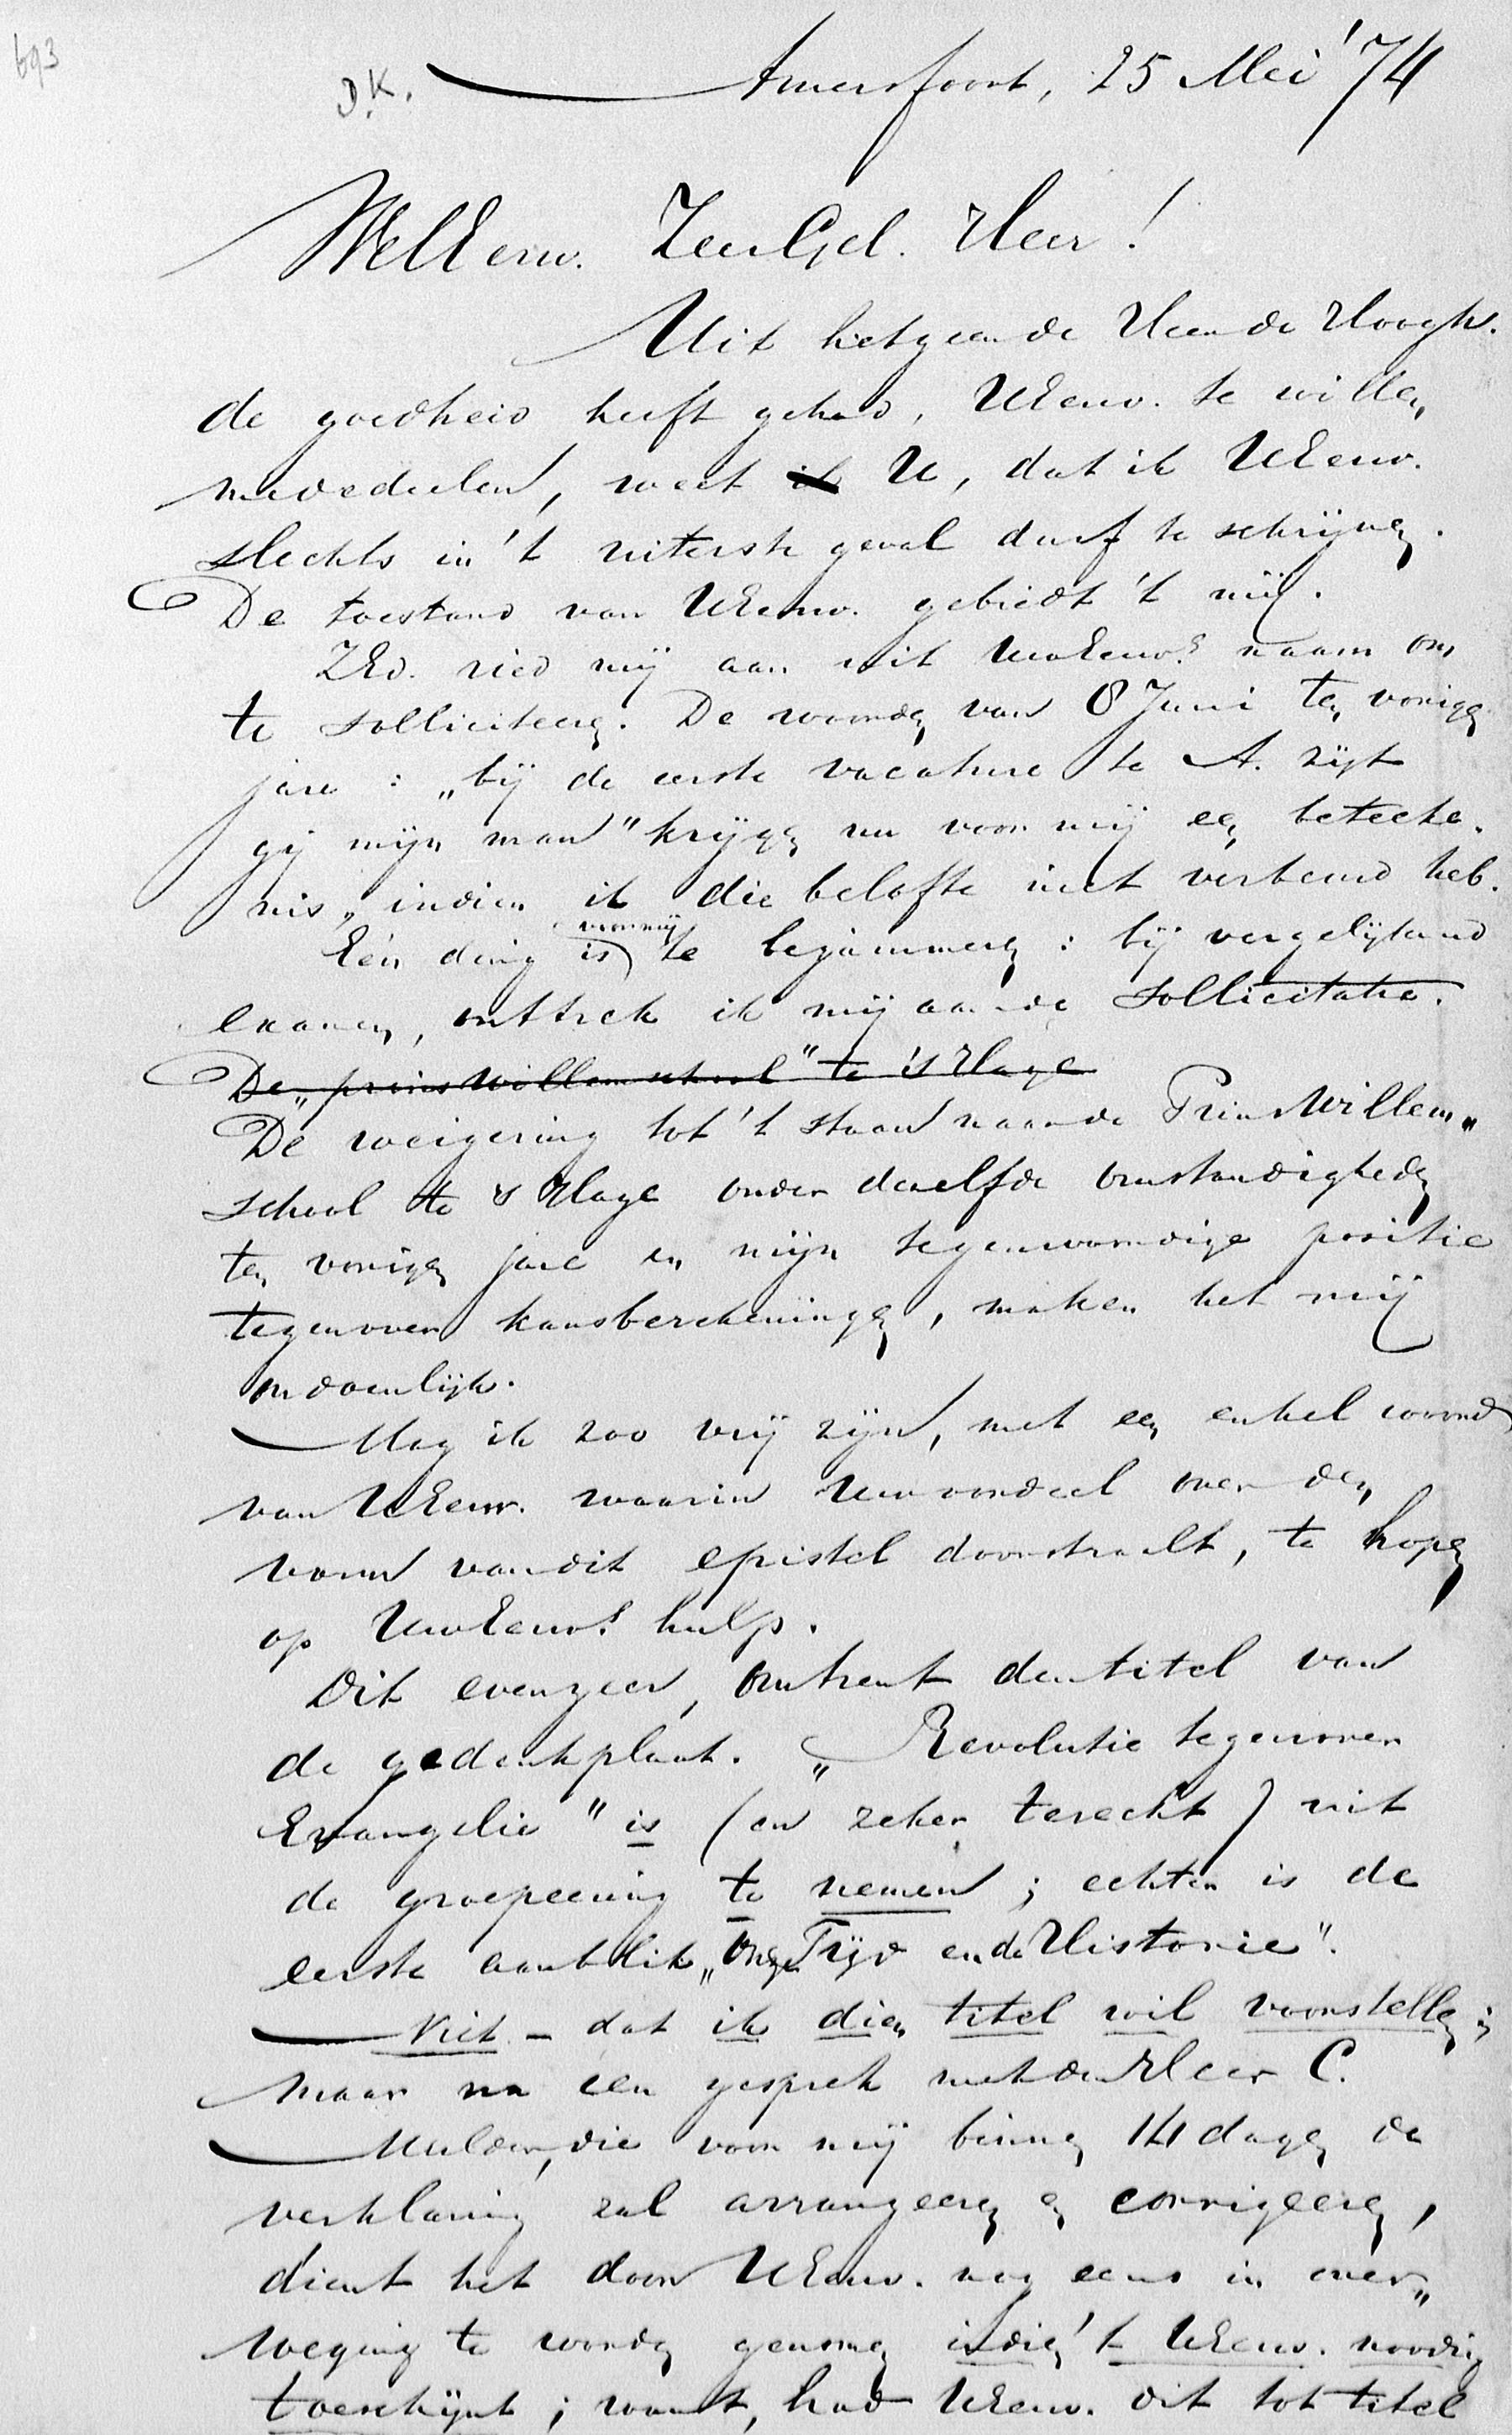 693
D.K.
Amersfoort, 25 Mei '74
WelEerw. ZeerGel. Heer!
Uit hetgeen de Heer de Hoogh.
de goedheid heeft gehad, UEerw. te willen
mededeelen, weet ik U, dat ik UEerw.
slechts in 't uiterste geval durf te schrijven.
De toestand van UEerw. gebiedt 't mij.
ZEd. ried mij aan uit UwEerws naam om
te solliciteeren. De woorden van 8 Juni ten vorigen
jare : „bij de eerste vacature te A. zijt
gij mijn man" krijgen nu voor mij een beteeke-
nis, indien ik die belofte niet verbeurd heb.
Eén ding is voor mij te bejammeren : bij vergelijkend
examen, onttrek ik mij aan de sollicitatie.
De „prins Willem school" te 's Hage
De weigering tot 't staan naar de Prins Willem„
school te 's Hage onder dezelfde omstandigheden
ten vorigen jare en mijn tegenwoordige positie
tegenover kansberekeningen, maken het mij
ondoenlijk.
Mag ik zoo vrij zijn, met een enkel woord
van UEerw. waarin Uw oordeel over den
vorm van dit epistel doorstraalt, te hopen
op UwEerws hulp.
Dit evenzeer, omtrent den titel van
de gedenkplaat. „Revolutie tegenover
Evangelie" is (en zeker terecht) uit
de groepeering te nemen ; echter is de
eerste aanblik „Onze Tijd en de Historie".
Niet – dat ik dien titel wil voorstellen ;
maar na een gesprek met den Heer C.
Mulder, die voor mij binnen 14 dagen de
verklaring zal arrangeeren en corrigeeren,
dient het door UEerw. nog eens in over„
weging te worden genomen indien 't UEerw. noodig
toeschijnt ; want, had UEerw. dit tot titel